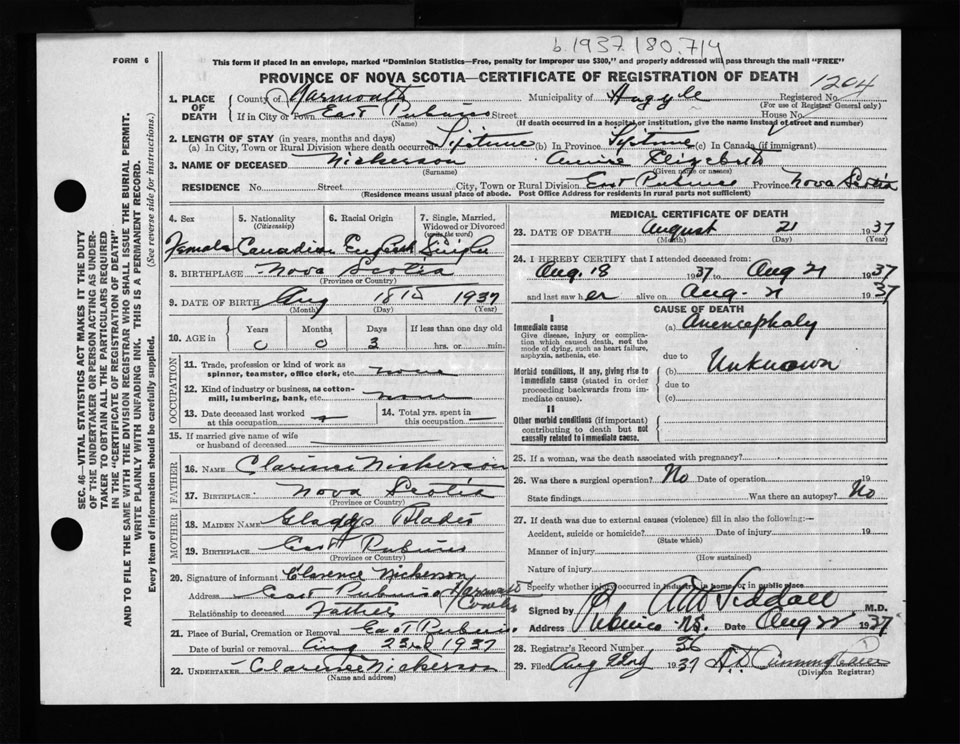 b.1937.180.714
FORM 6
This form if placed in an envelope, marked "Dominion Statistics—Free, penalty for improper use $300," and properly addressed will pass through the mail "FREE"
PROVINCE OF NOVA SCOTIA—CERTIFICATE OF REGISTRATION OF DEATH
1204
1. PLACE OF DEATH County of Yarmouth Municipality of Argyle Registered No.
(For use of Registrar General only)
If in City or Town East Pubnico Street House No.
(Name) (If death occurred in a hospital or institution, give the name instead of street and number)
2. LENGTH OF STAY (in years, months and days)
(a) In City, Town or Rural Division where death occurred Lifetime (b) In Province Lifetime (c) In Canada (if immigrant)
3. NAME OF DECEASED Nickerson Annie Elizabeth
(Surname) (Given name or names)
RESIDENCE No. Street City, Town or Rural Division East Pubnico Province Nova Scotia
(Residence means usual place of abode. Post Office Address for Residents in rural parts not sufficient)
4. Sex 5. Nationality (Citizenship) 6. Racial Origin 7. Single, Married, Widowed or Divorced (write the word)
Female Canadian English Single
8. BIRTHPLACE Nova Scotia
(Province or Country)
9. DATE OF BIRTH Aug 18th 1937
(Month) (Day) (Year)
10. AGE in Years Months Days If less than one day old
0 0 3 hrs. or min.
OCCUPATION
11. Trade, profession or kind of work as spinner, teamster, office clerk, etc. none
12. Kind of industry or business, as cotton-mill, lumbering, bank, etc. none
13. Date deceased last worked at this occupation 14. Total yrs. spent in this occupation
15. If married give name of wife or husband of deceased
FATHER
16. NAME Clarence Nickerson
17. BIRTHPLACE Nova Scotia
(Province or Country)
MOTHER
18. MAIDEN NAME Gladys Blades
19. BIRTHPLACE East Pubnico
(Province or Country)
20. Signature of informant Clarence Nickerson
Address East Pubnico Yarmouth County
Relationship to deceased Father
21. Place of Burial, Cremation or Removal East Pubnico
Date of burial or removal Aug 23rd 1937
22. UNDERTAKER Clarence Nickerson
(Name and address)
MEDICAL CERTIFICATE OF DEATH
23. DATE OF DEATH August 21 1937
(Month) (Day) (Year)
24. I HEREBY CERTIFY that I attended deceased from:
Aug. 18 1937 to Aug 21 1937
and last saw her alive on Aug. 21 1937
CAUSE OF DEATH
I
Immediate cause
Give disease, injury or complication which caused death, not the mode of dying, such as heart failure, asphyxia, asthenia, etc.
(a) Anencephaly
due to
Morbid conditions, if any, giving rise to immediate cause (stated in order proceeding backwards from immediate cause).
(b) Unknown
due to
(c)
II
Other morbid conditions (if important) contributing to death but not causally related to immediate cause.
25. If a woman, was the death associated with pregnancy?
26. Was there a surgical operation? No Date of operation 19
State findings Was there an autopsy? No
27. If death was due to external causes (violence) fill in also the following:—
Accident, suicide or homicide? Date of injury 19
(State which)
Manner of injury
(How sustained)
Nature of injury
Specify whether injury occurred in industry, in home, or in public place
Signed by Siddall M.D.
Address Pubnico N.S. Date Aug 22 1937
28. Registrar's Record Number 36
29. Filed Aug 1937 Cunningham
(Division Registrar)
SEC. 46—VITAL STATISTICS ACT MAKES IT THE DUTY
OF THE UNDERTAKER OR PERSON ACTING AS UNDER-
TAKER TO OBTAIN ALL THE PARTICULARS REQUIRED
IN THE "CERTIFICATE OF REGISTRATION OF DEATH"
AND TO FILE THE SAME WITH THE DIVISION REGISTRAR WHO SHALL ISSUE THE BURIAL PERMIT.
WRITE PLAINLY WITH UNFADING INK. THIS IS A PERMANENT RECORD.
Every item of information should be carefully supplied. (See reverse side for instructions.)